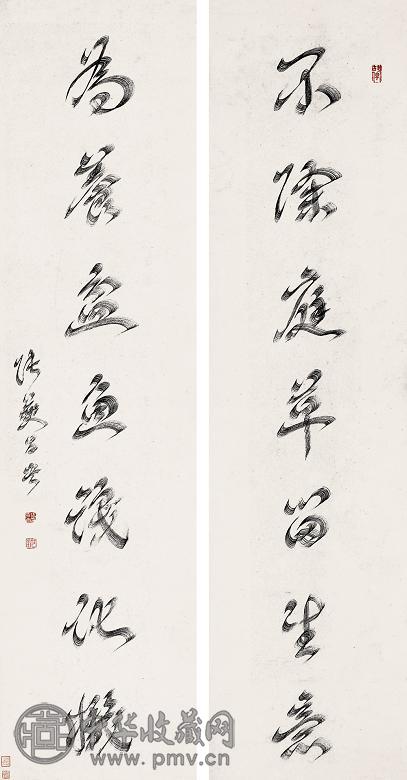 不除庭草留生意
為養盆魚識化機
华收藏网
www.pmv.cn